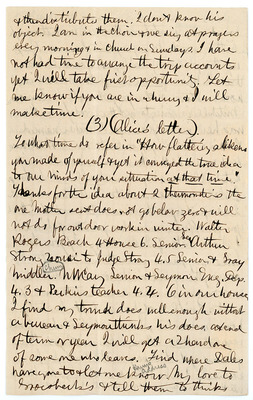 & then distribute them. I don't know his
object. I am in the choir & we sing at prayers
every morning & in church on Sundays. I have
not had time to arrange the trip account
yet I will take first opportunity. Let
me know if you are in a hurry & I will
make time.
(3) (Alice's letter)
To what time do refer in "How flattering a likeness
you made of yourself & yet it conveyed the true idea
to our minds of your situation at that time."
Thanks for the idea about a thermometer the
one Mother sent does not go below zero & will
not do for outdoor work in winter. Walter
Rogers Beach 4 House 6. Senior Arthur
Strong to Judge Strong 4.5 Senior & Gray
middler. McKay Senior & Seymour Eng. Dep.
4.3 & Perkins teacher 4.4. 6 in our house
I find my trunk does well enough without
a bureau & Seymour thinks his does. At end
of term or year I will get a 2 hand one
of some one who leaves. Find where Dales
have gone to & let me know. My love to
& tell them to think